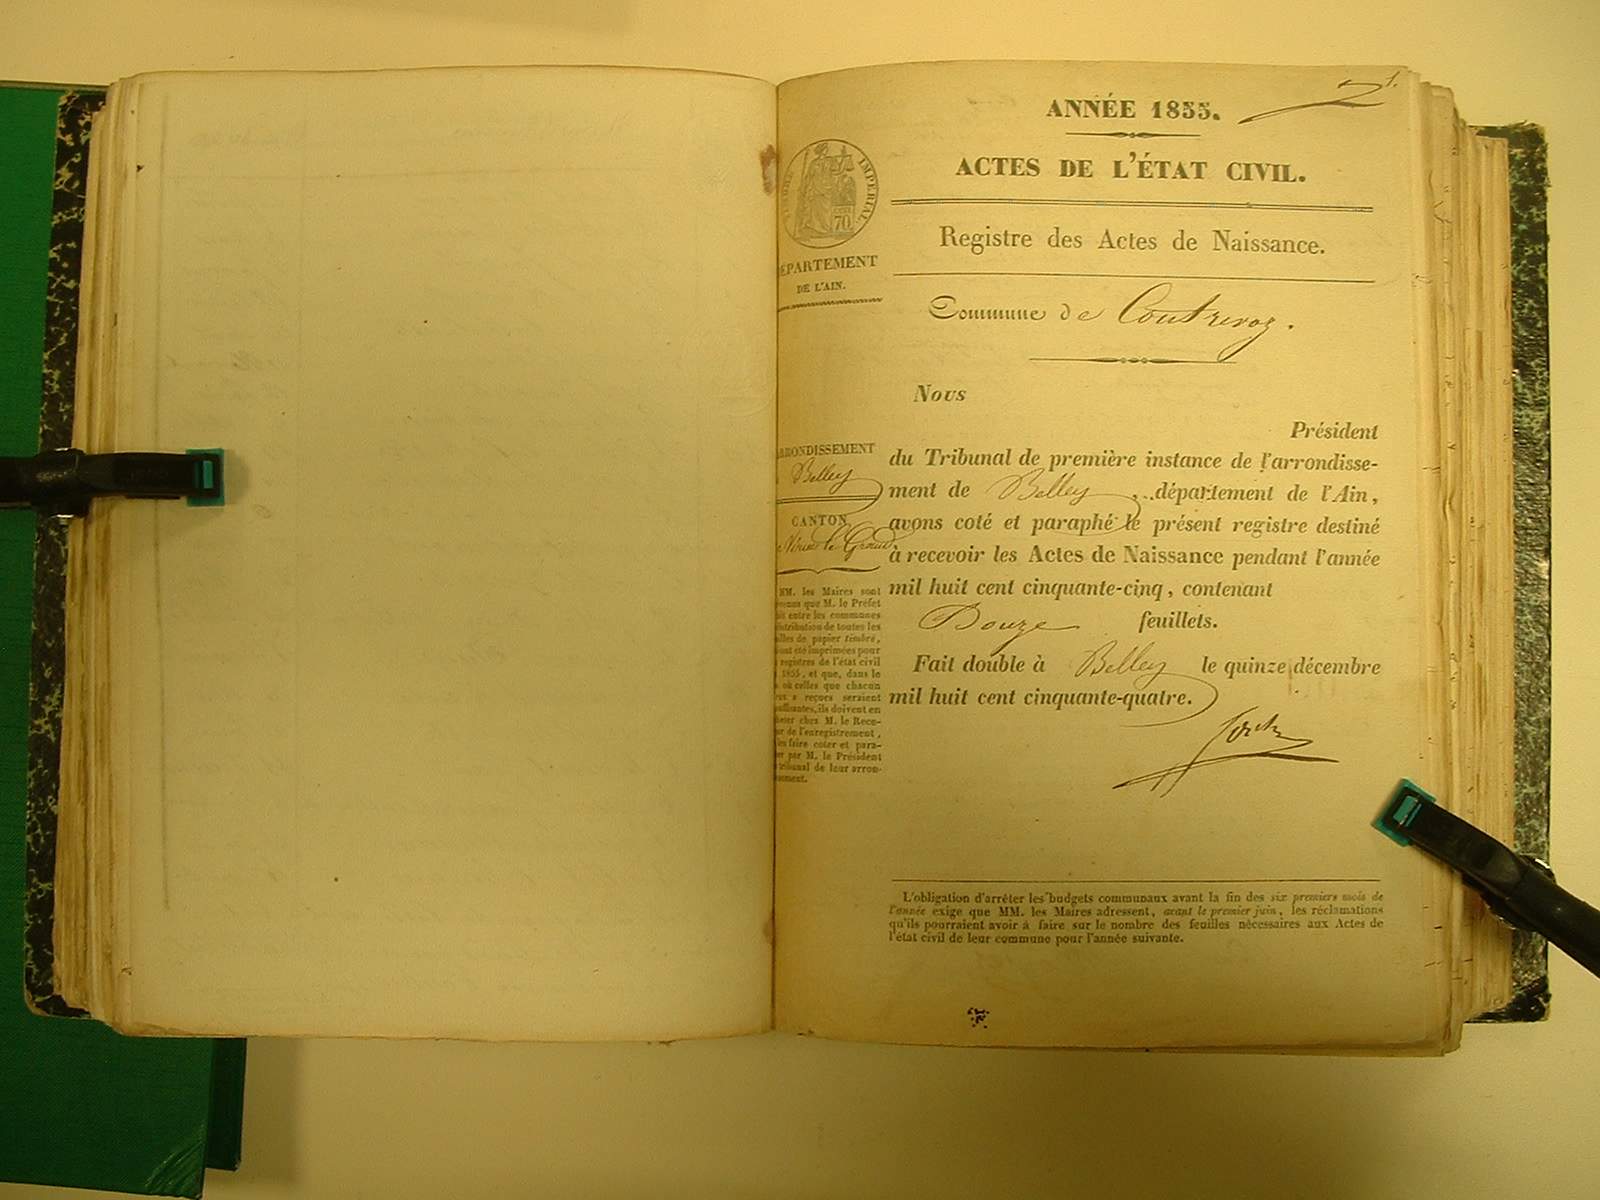 1.
ANNÉE 1855.
ACTES DE L'ÉTAT CIVIL.
Registre des Actes de Naissance.
Commune de Contrevoz.
TIMBRE IMPERIAL
70
ÉPARTEMENT
DE L'AIN.
RRONDISSEMENT
Belley
CANTON
le Grand
MM. les Maires sont
venus que M. le Préfet
it entre les communes
istribution de toutes les
illes de papier timbre,
ont été imprimées pour
registres de l'état civil
1855, et que, dans le
où celles que chacun
ux a reçues seraient
uffisantes, ils doivent en
heter chez M. le Rece-
ur de l'enregistrement,
les faire coter et para-
er par M. le Président
tribunal de leur arron-
ssement.
Nous
Président
du Tribunal de première instance de l'arrondisse-
ment de Belley, département de l'Ain,
avons coté et paraphé le présent registre destiné
à recevoir les Actes de Naissance pendant l'année
mil huit cent cinquante-cinq, contenant
Douze feuillets.
Fait double à Belley le quinze décembre
mil huit cent cinquante-quatre.
L'obligation d'arrêter les budgets communaux avant la fin des six premiers mois de
l'année exige que MM. les Maires adressent, avant le premier juin, les réclamations
qu'ils pourraient avoir à faire sur le nombre des feuilles nécessaires aux Actes de
l'état civil de leur commune pour l'année suivante.